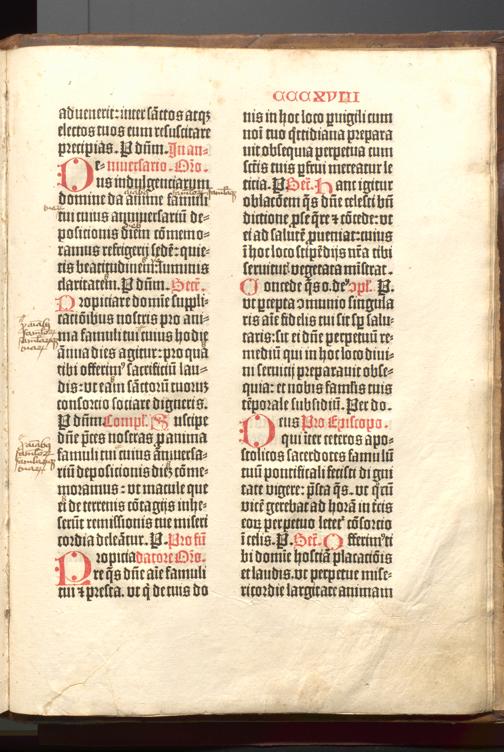 CCCXVIII
aduenerit: inter sc̄tos atqꝫ
electos tuos eum resuscitare
precipias. P dn̄m. In an-
niuersario. Oro.
Deus indulgentiarum
domine da anime famuli
tui cuius anniuersariū de-
positionis diem cōmemo-
ramus refrigerij sedē: quie-
tis beatitudinem: luminis
claritatem. P dn̄m. Secr̄.
Propiciare domine suppli-
cationibus nostris pro ani-
ma famuli tui cuius hodie
annua dies agitur: pro qua
tibi offerimꝰ sacrificiū lau-
dis: vt eam sanctorū tuorum
consorcio sociare digneris.
P dn̄m. Compl̄. Suscipe
dn̄e p̄ces nostras p anima
famuli tui cuius āniuersa-
riū depositionis diē cōme-
moramus: vt macule que
ei de terrenis cōtagijs inhe-
serūt remissionis tue miseri
cordia deleātur. P. Pro fū
datore Oro.
Propicia
re qs̄ dn̄e aīe famuli
tui ⁊ presta. vt q̄ de tuis do
nis in hoc loco puigili cum
noīi tuo q̄tidiana prepara
uit obsequia perpetua cum
sc̄tis tuis pfrui mereatur le
ticia. P Secr̄. Hanc igitur
oblacōem qs̄ dn̄e celesti bn̄
dictione pseq̄re ⁊ cōcede: vt
ei ad salutē pueniat: cuius
ī hoc loco stipēdijs nr̄a tibi
seruitus vegetata mīstrat.
Concede qs̄ o. deꝰ ꝯpl̄. P.
vt pcepta ꝯmunio singula
ris aīe fidelis tui sit sp̄ salu-
taris: sit ei dn̄e perpetuū re-
mediū qui in hoc loco diui-
ni seruicij preparauit obse-
quia: et nobis famlis tuis
tēporale subsidiū. Per do.
Deus Pro Episcopo.
qui īter ceteros apo-
stolicos sacerdotes famulū
tuū pontificali fecisti digni
tate vigere: p̄sta qs̄. vt q̄rū
vicē gerebat ad horam in t̄ris
eoꝝ perpetuo letet̄ cōsorcio
ī celis. P. Secr̄. Offerimꝰ ti
bi domine hostiā placatiōis
et laudis. vt perpetue mise-
ricordie largitate animam